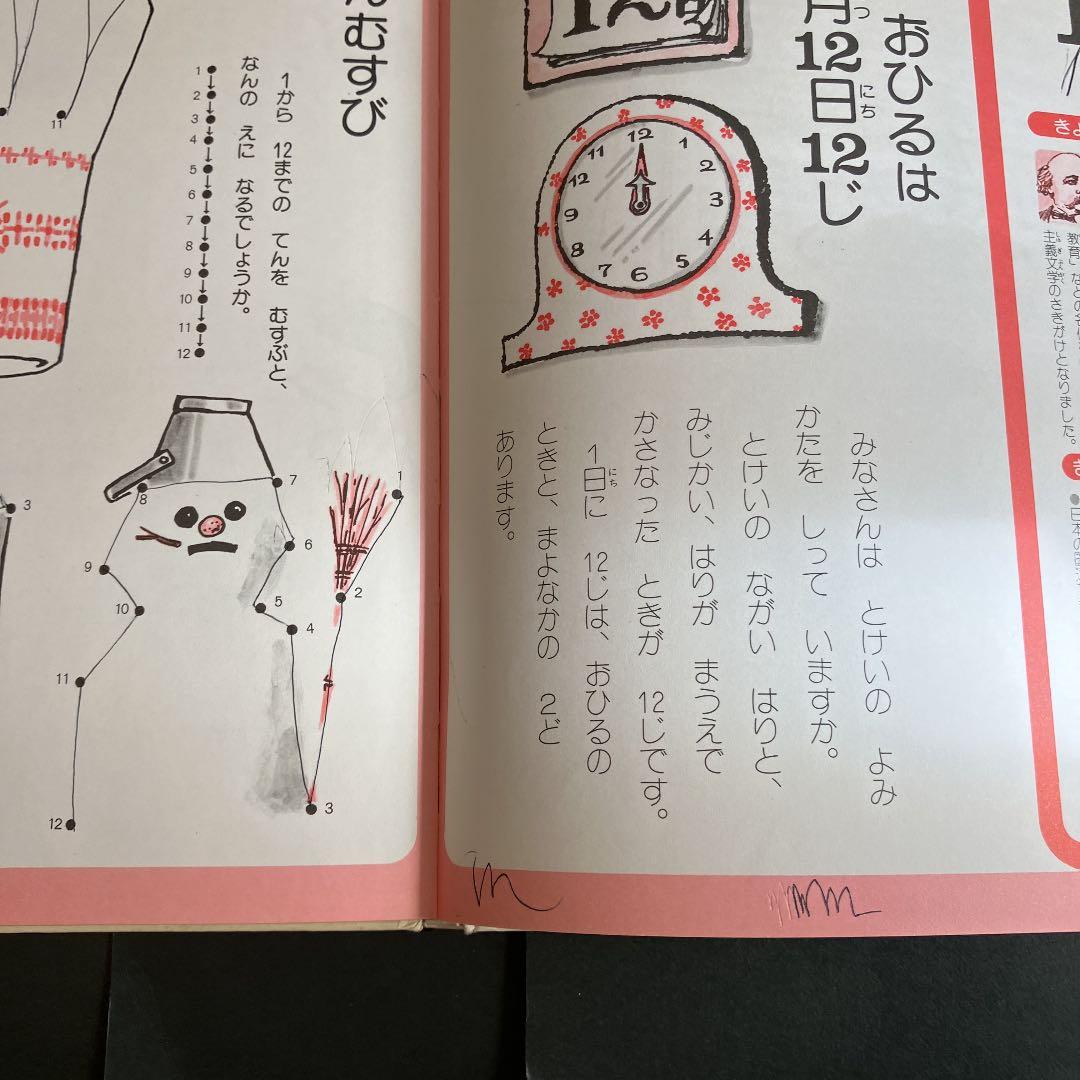 おひるは
月12日12じ
つ
にち
12
1
2
3
4
5
6
7
8
9
12
11
みなさんは とけいの よみ
かたを しって いますか。
とけいの ながい はりと、
みじかい、はりが まうえで
かさなった ときが 12じです。
1日に 12じは、おひるの
にち
ときと、まよなかの 2ど
あります。
教育」
主義文学のさきがけとなりました。
むすび
1から 12までの てんを むすぶと、
なんの えに なるでしょうか。
1
2
3
4
5
6
7
8
9
10
11
12
11
3
1
2
3
4
5
6
7
8
9
10
11
12